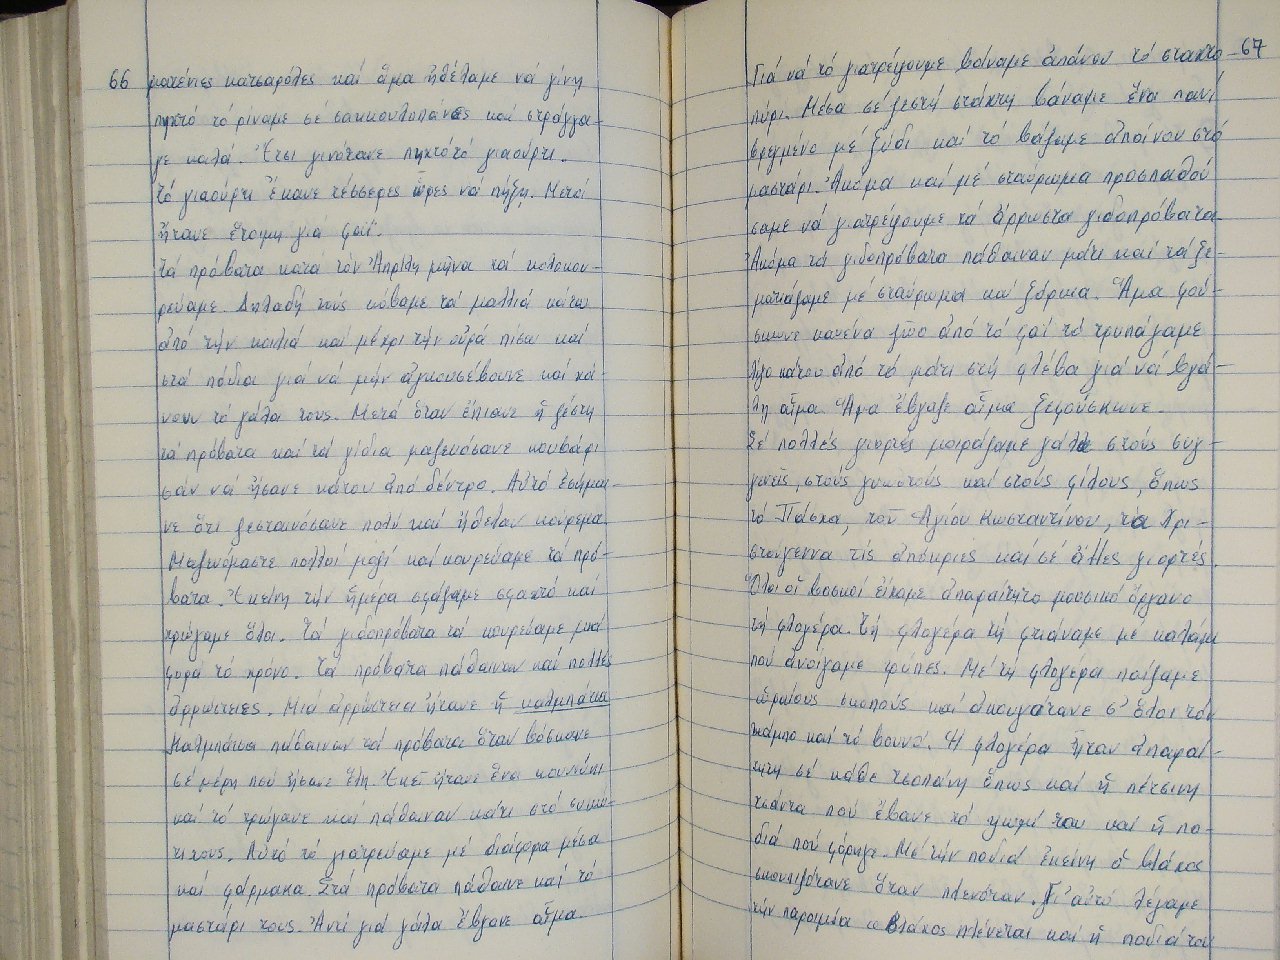 66
ματένιες κατσαρόλες καί ἅμα ἠθέλαμε νά γίνη
πηχτό τό ρίναμε σέ σακκουλοπάνες καί στράγγα-
γε καλά. Ἔτσι γινότανε πηχτό τό γιαούρτι.
Τό γιαούρτι ἔκανε τέσσερες ὧρες νά πήξη. Μετά
ἤτανε ἕτοιμη γιά φαΐ.
Τά πρόβατα κατά τόν Ἀπρίλη μῆνα τά κολοκου-
ρεύαμε. Δηλαδή τούς κόβαμε τά μαλλιά κάτω
ἀπό τήν κοιλιά καί μέχρι τήν οὐρά πίσω καί
στά πόδια γιά νά μήν ἀγκουσεύουνε καί χά-
νουν τό γάλα τους. Μετά ὅταν ἔπιανε ἡ ζέστη
τά πρόβατα καί τά γίδια μαζευόσανε κουβάρι
σάν νά ἤσανε κάτου ἀπό δέντρο. Αὐτό ἐσήμαι-
νε ὅτι ζεσταινόσανε πολύ καί ἤθελαν κούρεμα.
Μαζευόμαστε πολλοί μαζί καί κουρεύαμε τά πρό-
βατα. Ἐκείνη τήν ἡμέρα σφάζαμε σφαχτό καί
τρώγαμε ὅλοι. Τά γιδοπρόβατα τά κουρεύαμε μιά
φορά τό χρόνο. Τά πρόβατα πάθαιναν καί πολλές
ἀρρώστειες. Μιά ἀρρώστεια ἤτανε ἡ καλμπάτσα
Καλμπάτσα πάθαιναν τά πρόβατα ὅταν βόσκανε
σέ μέρη πού ἤσανε ἕλη. Ἐκεῖ ἤτανε ἕνα κουνούπι
καί τό τρώγανε καί πάθαιναν κάτι στό συκώ-
τι τους. Αὐτό τό γιατρεύαμε μέ διάφορα μέσα
καί φάρμακα. Στά πρόβατα πάθαινε καί τό
μαστάρι τους. Ἀντί γιά γάλα ἔβγανε αἷμα.
67
Γιά νά τό γιατρέψουμε βάναμε ἀπάνου τό σταχτο-
πύρι. Μέσα σέ ζεστή στάχτη βάναμε ἕνα πανί
βρεγμένο μέ ξύδι καί τό βάζαμε ἀπάνου στό
μαστάρι. Ἀκόμα καί μέ σταύρωμα προσπαθού
σαμε νά γιατρέψουμε τά ἄρρωστα γιδοπρόβατα
Ἀκόμα τά γιδοπρόβατα πάθαιναν μάτι καί τά ξε-
ματιάζαμε μέ σταύρωμα καί ξόρκια. Ἅμα φού-
σκωνε κανένα ζῶο ἀπό τό φαΐ τό τρυπάγαμε
λίγο κάτου ἀπό τό μάτι στή φλέβα γιά νά βγά-
λη αἷμα. Ἅμα ἔβγαζε αἷμα ξεφούσκωνε.
Σέ πολλές γιορτές μοιράζαμε γάλα στούς συγ-
γενεῖς, στούς γνωστούς καί στούς φίλους, ὅπως
τό Πάσχα, τοῦ Ἁγίου Κωσταντίνου, τα Χρι-
στούγεννα τίς ἀπόκριές καί σέ ἄλλες γιορτές.
Ὅλοι οἱ βοσκοί εἴχαμε ἀπαραίτητο μουσικό ὄργανο
τή φλογέρα. Τή φλογέρα τή φτιάναμε μέ καλάμι
πού ἀνοίγαμε τρύπες. Μέ τή φλογέρα παίζαμε
ὡραίους σκοπούς καί ἀκουγότανε σ' ὅλοι τόν
κάμπο καί τό βουνό. Ἡ φλογέρα ἦταν ἀπαραί-
τητη σέ κάθε τσοπάνη ὅπως καί ἡ πέτσινη
τσάντα πού ἔβανε τό ψωμί του καί ἡ πο-
διά πού φόραγε. Μέ τήν ποδιά ἐκείνη ὁ βλάχος
σκουπιζότανε ὅταν πλενόταν. Γι' αὐτό λέγαμε
τήν παροιμία ο Βλάχος πλένεται καί ἡ ποδιά του